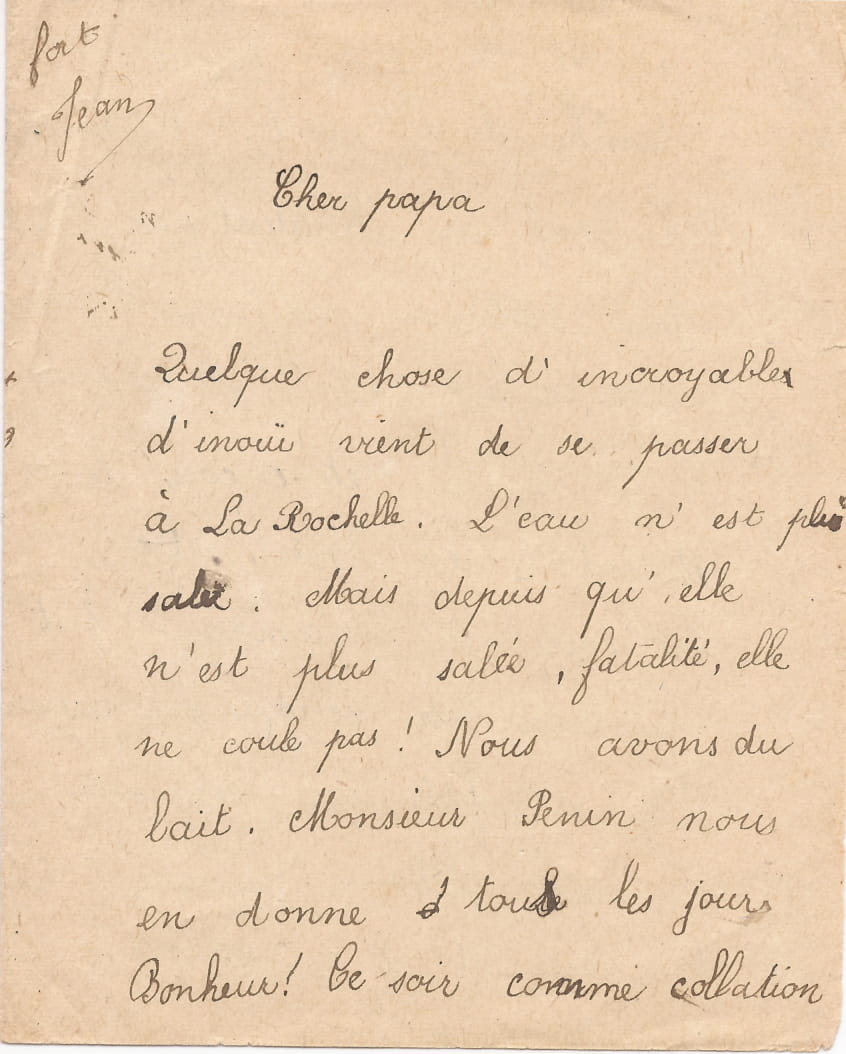 fort
Jean
Cher papa
Quelque chose d'incroyable
d'inouï vient de se passer
à La Rochelle. L'eau n'est plus
salée. Mais depuis qu'elle
n'est plus salée, fatalité, elle
ne coule pas ! Nous avons du
lait. Monsieur Penin nous
en donne tous les jours
Bonheur! Ce soir comme collation